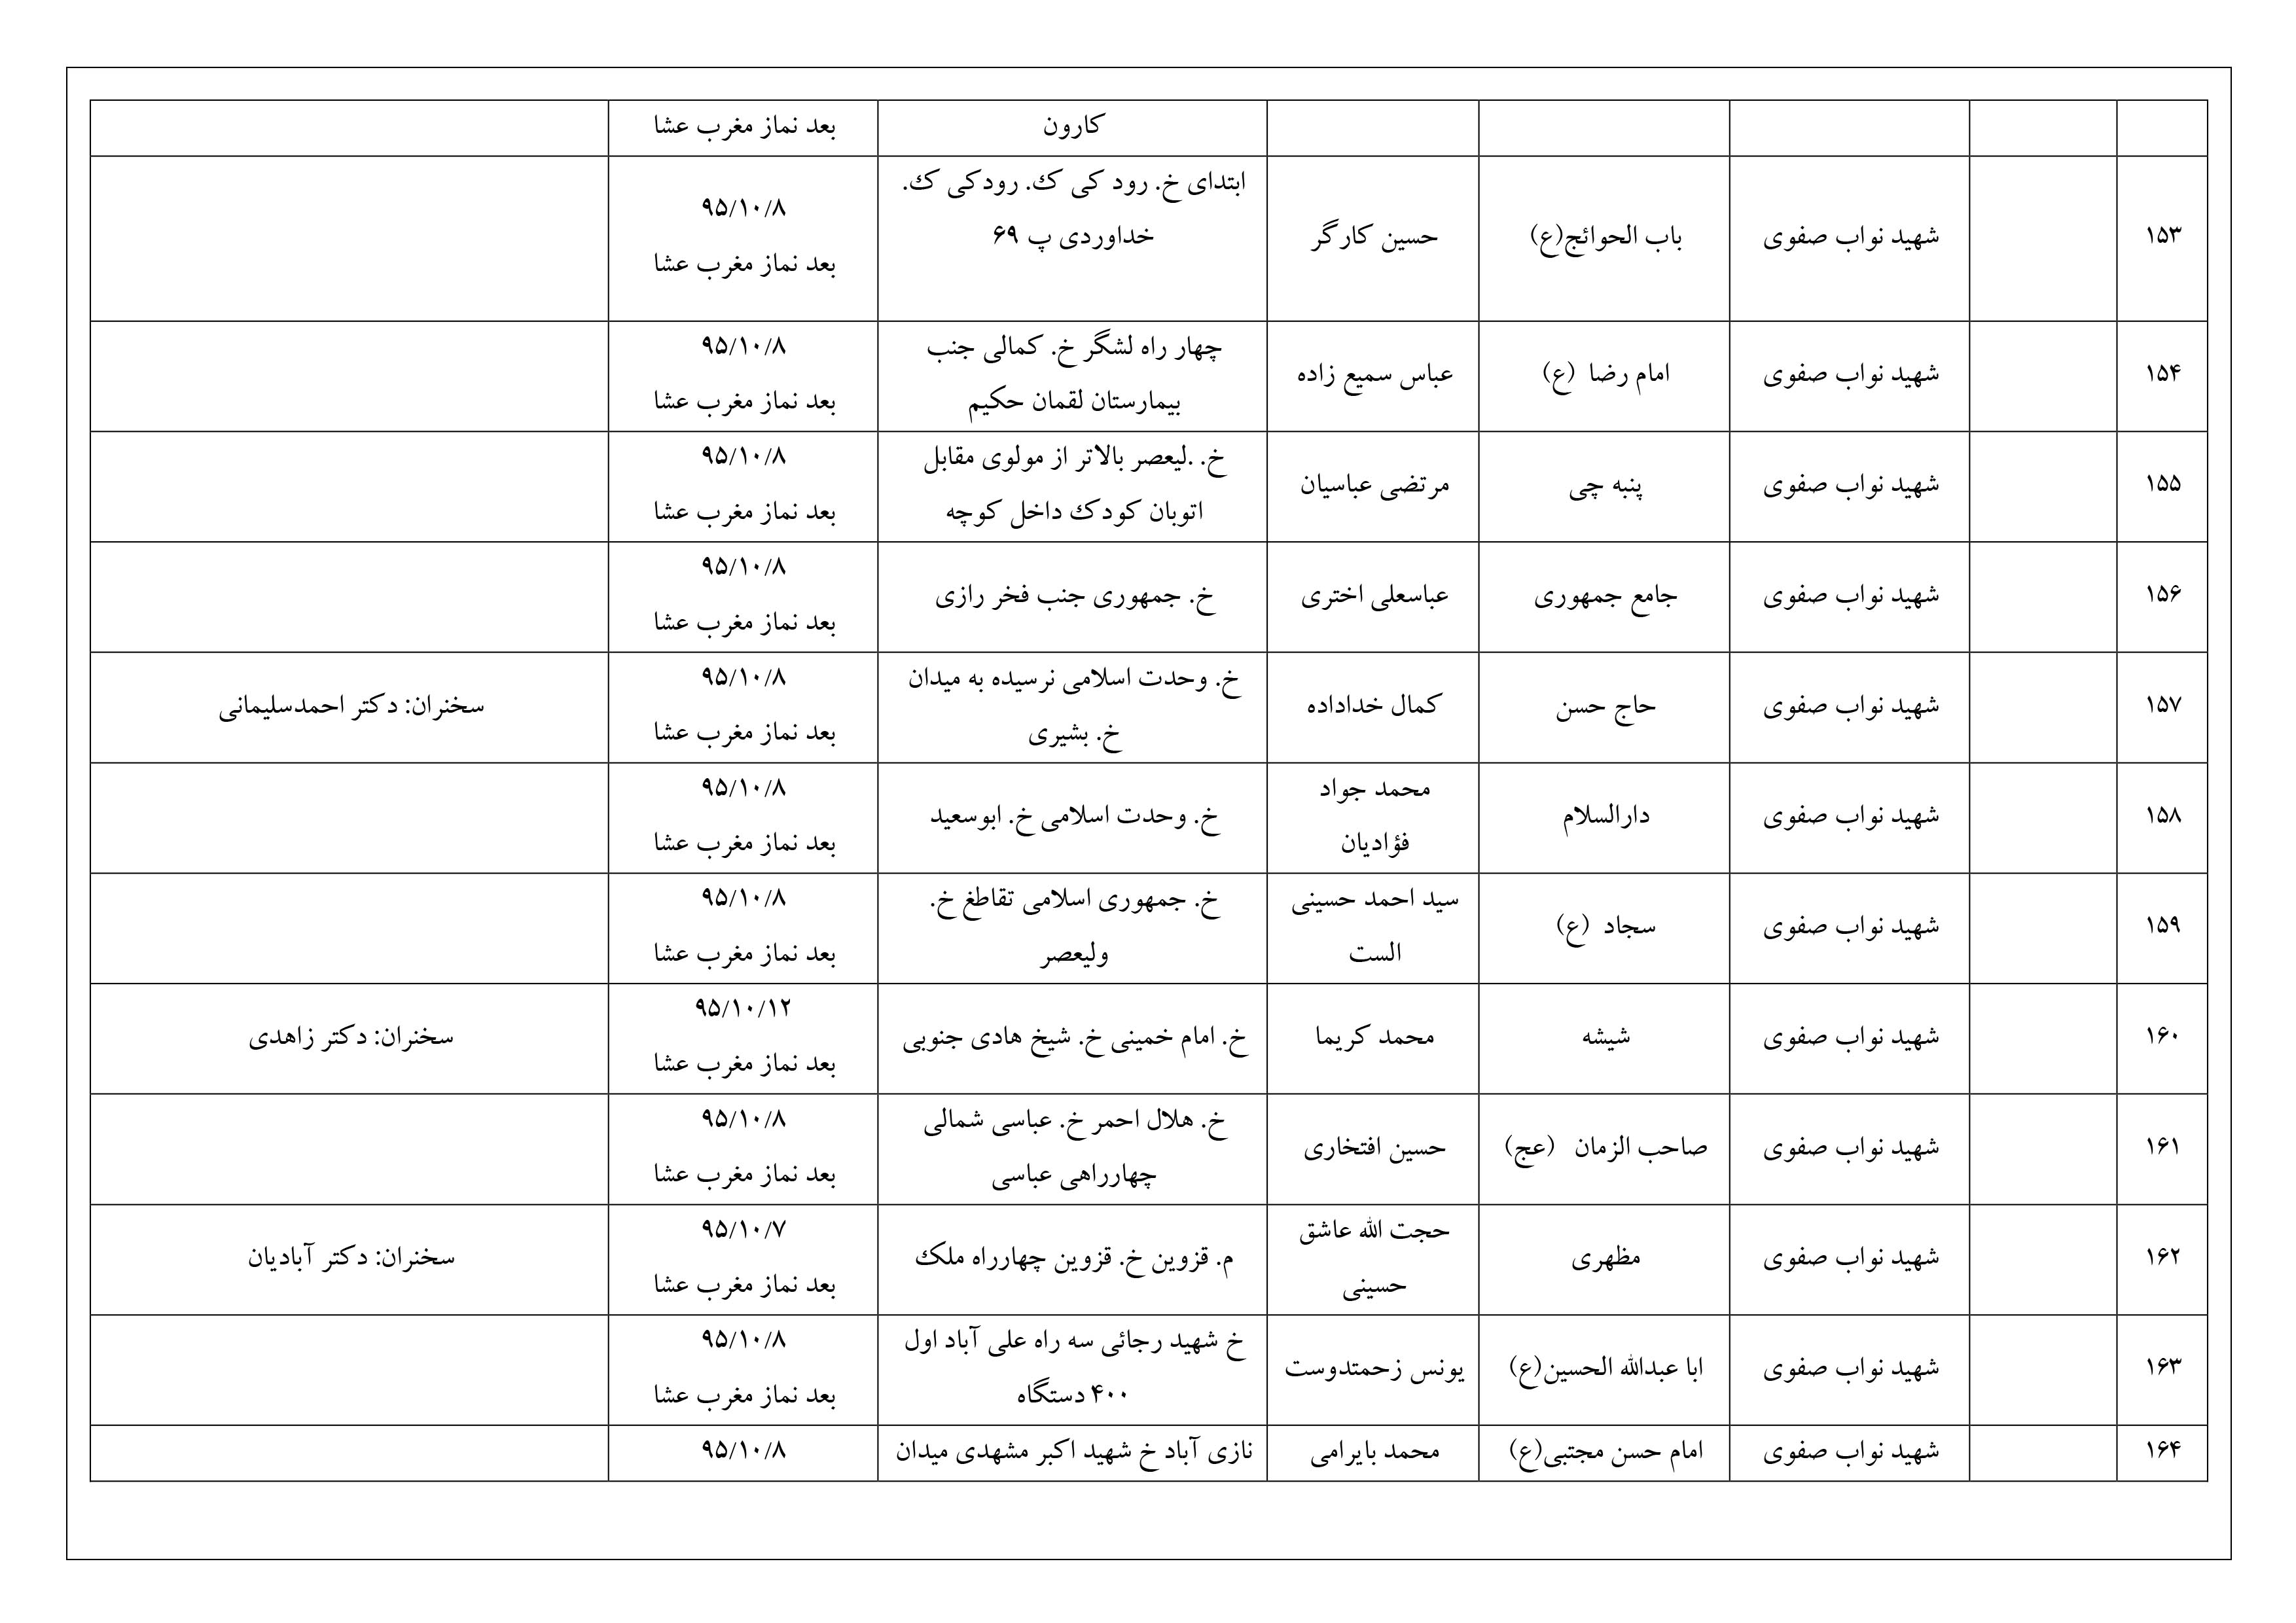 کارون بعد نماز مغرب عشا
۱۵۳ شهید نواب صفوی باب الحوائج(ع) حسین کارگر ابتدای خ. رود کی ک. رودکی ک. ۹۵/۱۰/۸
خداوردی پ ۶۹ بعد نماز مغرب عشا
۱۵۴ شهید نواب صفوی امام رضا (ع) عباس سمیع زاده چهار راه لشگر خ. کمالی جنب ۹۵/۱۰/۸
بیمارستان لقمان حکیم بعد نماز مغرب عشا
۱۵۵ شهید نواب صفوی پنبه چی مرتضی عباسیان خ. .لیعصر بالاتر از مولوی مقابل ۹۵/۱۰/۸
اتوبان کودک داخل کوچه بعد نماز مغرب عشا
۱۵۶ شهید نواب صفوی جامع جمهوری عباسعلی اختری خ. جمهوری جنب فخر رازی ۹۵/۱۰/۸
بعد نماز مغرب عشا
۱۵۷ شهید نواب صفوی حاج حسن کمال خداداده خ. وحدت اسلامی نرسیده به میدان ۹۵/۱۰/۸ سخنران: دکتر احمدسلیمانی
خ. بشیری بعد نماز مغرب عشا
۱۵۸ شهید نواب صفوی دارالسلام محمد جواد خ. وحدت اسلامی خ. ابوسعید ۹۵/۱۰/۸
فؤادیان بعد نماز مغرب عشا
۱۵۹ شهید نواب صفوی سجاد (ع) سید احمد حسینی خ. جمهوری اسلامی تقاطغ خ. ۹۵/۱۰/۸
الست ولیعصر بعد نماز مغرب عشا
۱۶۰ شهید نواب صفوی شیشه محمد کریما خ. امام خمینی خ. شیخ هادی جنوبی ۹۵/۱۰/۱۲ سخنران: دکتر زاهدی
بعد نماز مغرب عشا
۱۶۱ شهید نواب صفوی صاحب الزمان (عج) حسین افتخاری خ. هلال احمر خ. عباسی شمالی ۹۵/۱۰/۸
چهارراهی عباسی بعد نماز مغرب عشا
۱۶۲ شهید نواب صفوی مظهری حجت الله عاشق م. قزوین خ. قزوین چهارراه ملک ۹۵/۱۰/۷ سخنران: دکتر آبادیان
حسینی بعد نماز مغرب عشا
۱۶۳ شهید نواب صفوی ابا عبدالله الحسین(ع) یونس زحمتدوست خ شهید رجائی سه راه علی آباد اول ۹۵/۱۰/۸
۴۰۰ دستگاه بعد نماز مغرب عشا
۱۶۴ شهید نواب صفوی امام حسن مجتبی(ع) محمد بایرامی نازی آباد خ شهید اکبر مشهدی میدان ۹۵/۱۰/۸